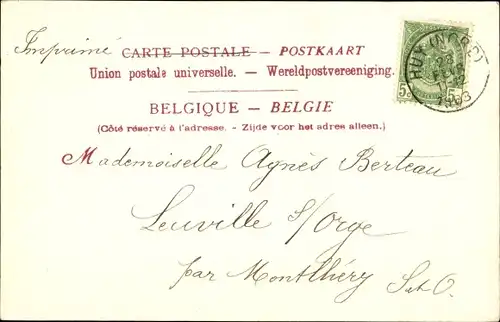 Imprimé
CARTE POSTALE — POSTKAART
Union postale universelle. — Wereldpostvereeniging.
BELGIQUE — BELGIE
(Côté réservé à l'adresse. - Zijde voor het adres alleen.)
Mademoiselle Agnès Berteau
Leuville s/Orge
par Montlhéry S et O.
HUY (NORD)
1903
5c 5c